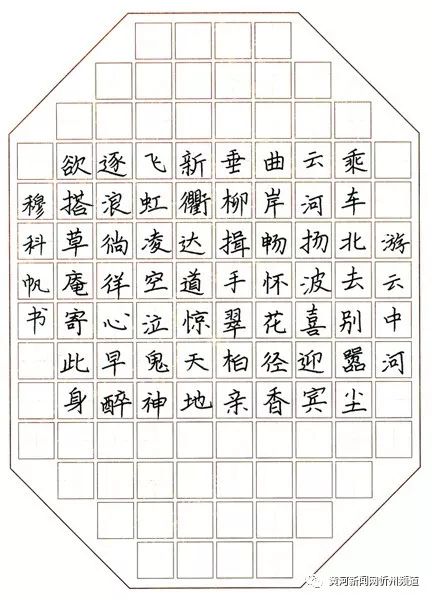 游云中河
乘车北去别嚣尘
云河扬波喜迎宾
曲岸畅怀花径香
垂柳揖手翠柏亲
新衢达道惊天地
飞虹凌空泣鬼神
逐浪徜徉心早醉
欲搭草庵寄此身
穆科帆书
黄河新闻网忻州频道